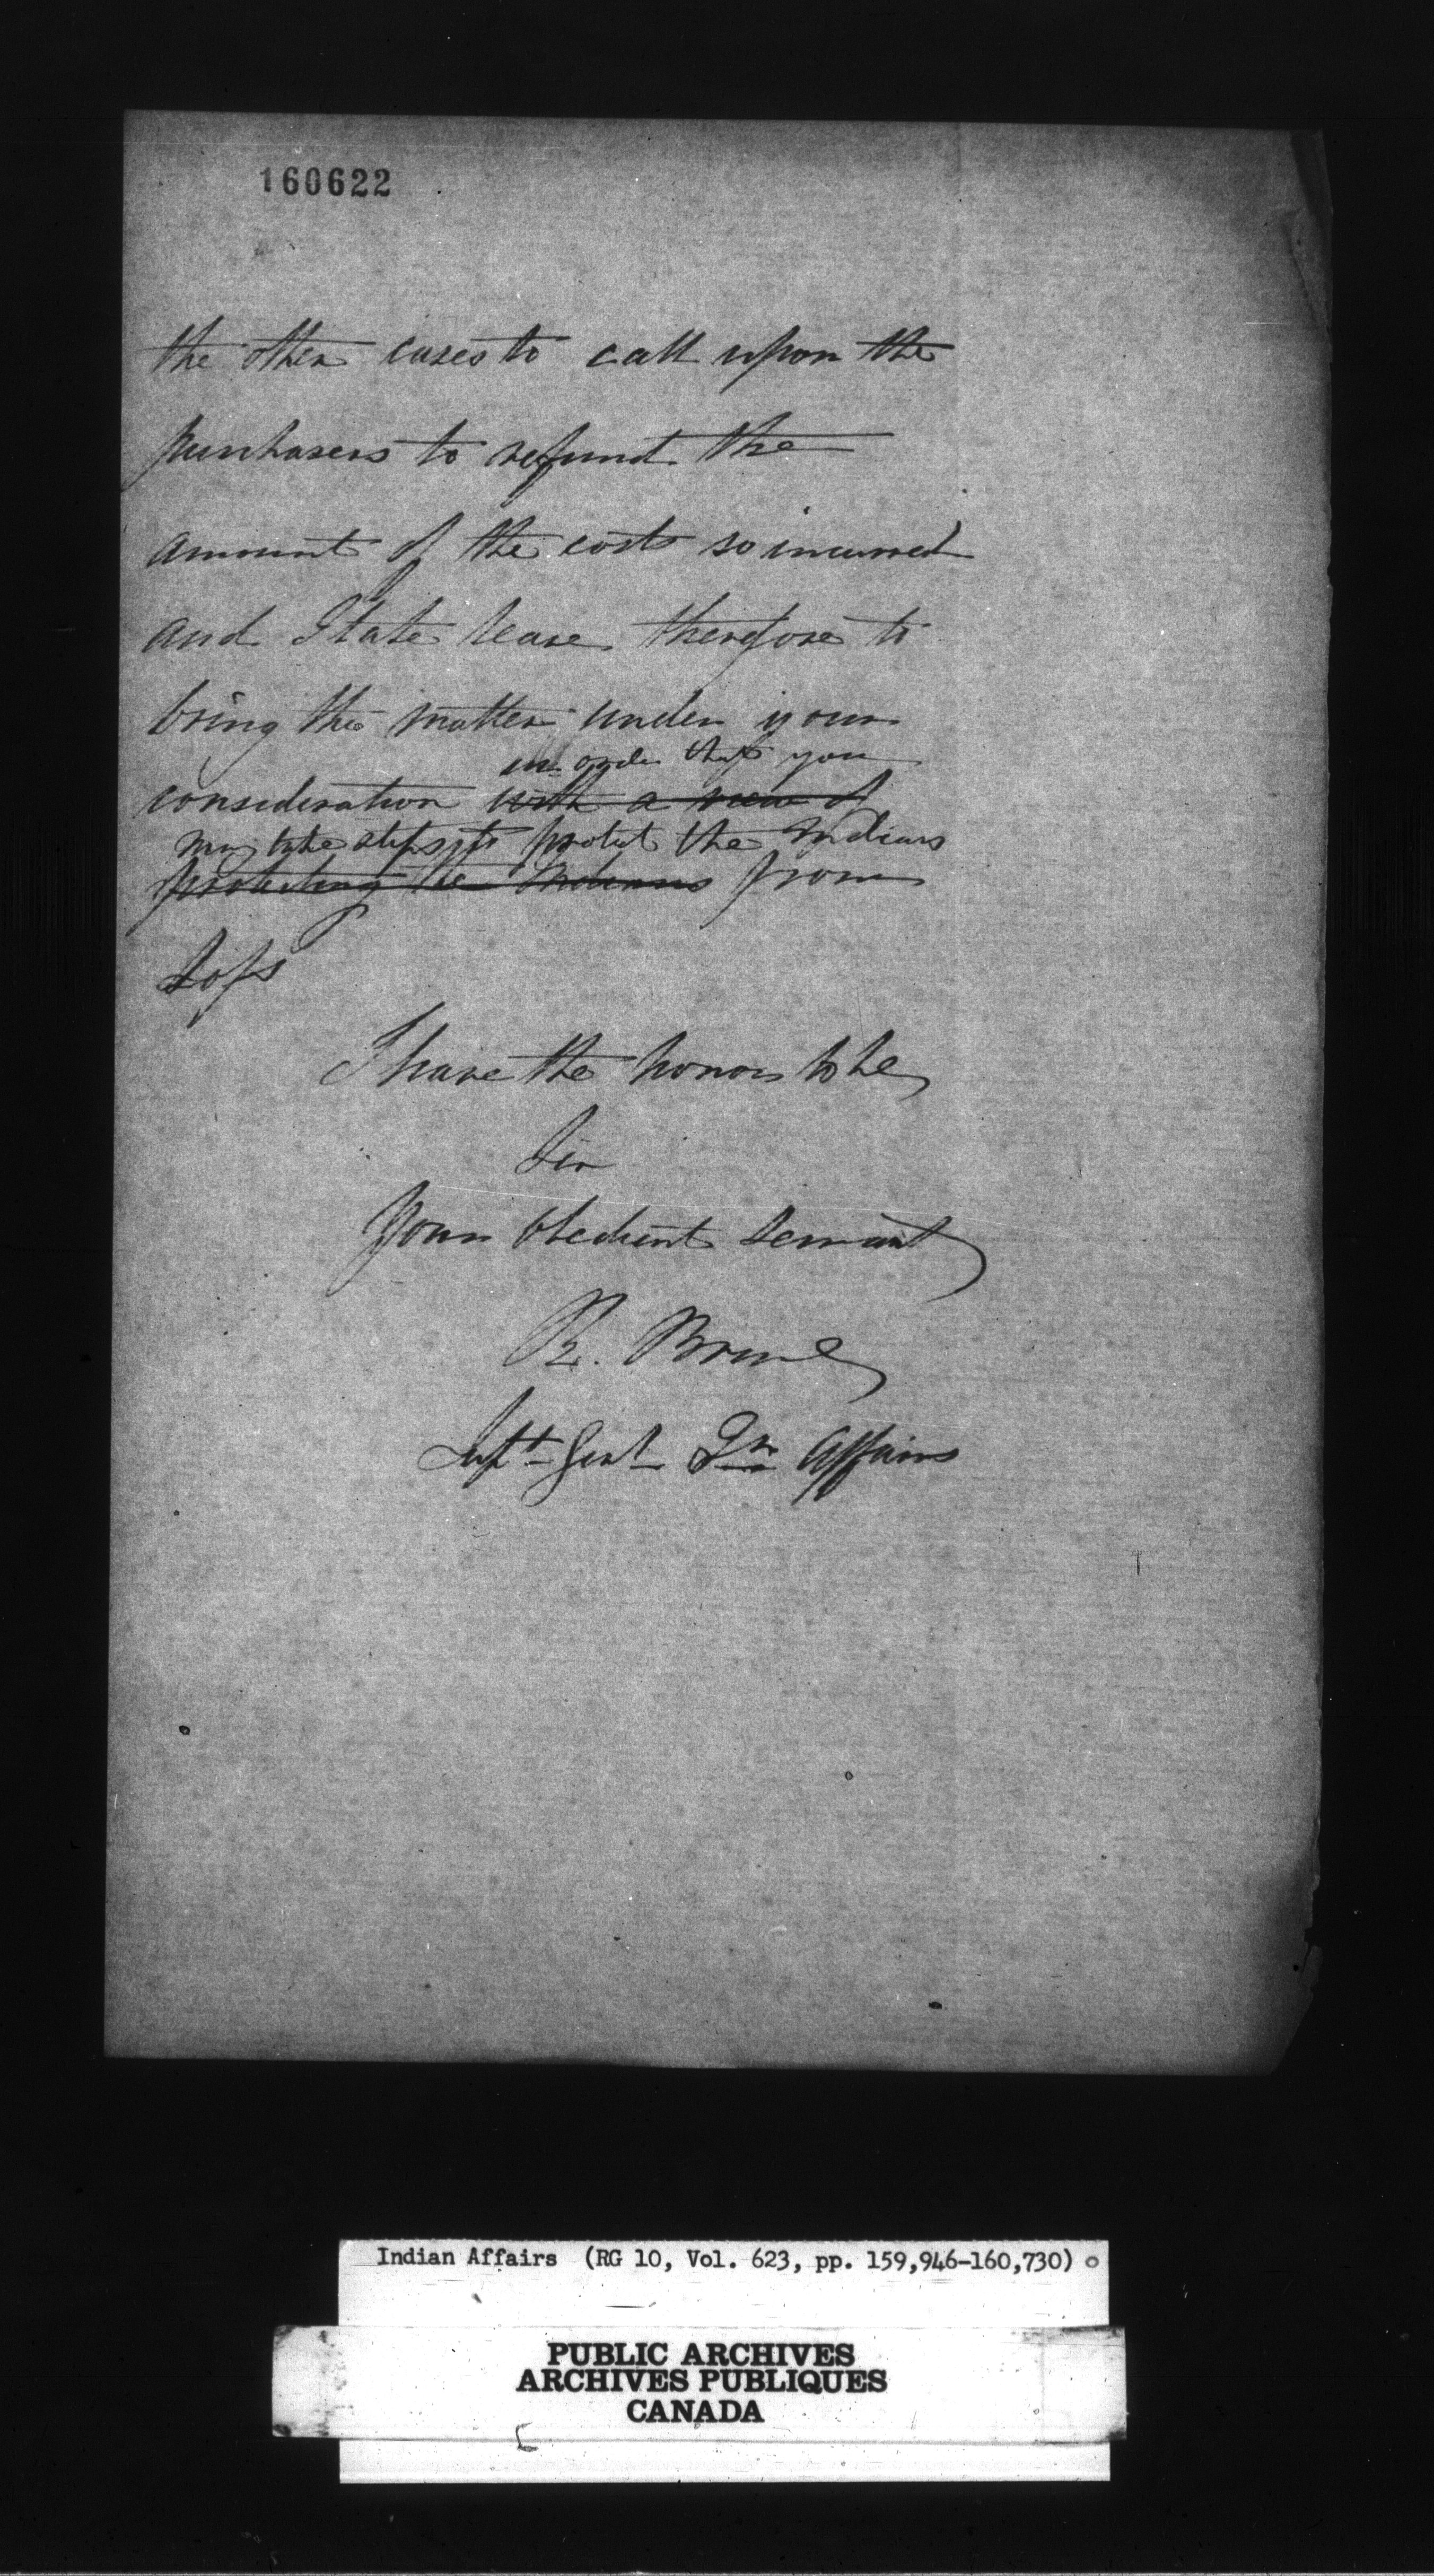 160622
the other cases to call upon the
purchasers to refund the
amount of the costs so incurred
and I take leave therefore to
bring the matter under your
in order that you
consideration with a view of
may take steps to protect the Indians
protecting the Indians from
Loss
I have the honor to be
Sir
Your obedient servant
R. Bruce
Supt Genl In Affairs
Indian Affairs (RG 10, Vol. 623, pp. 159,946-160,730)
PUBLIC ARCHIVES
ARCHIVES PUBLIQUES
CANADA